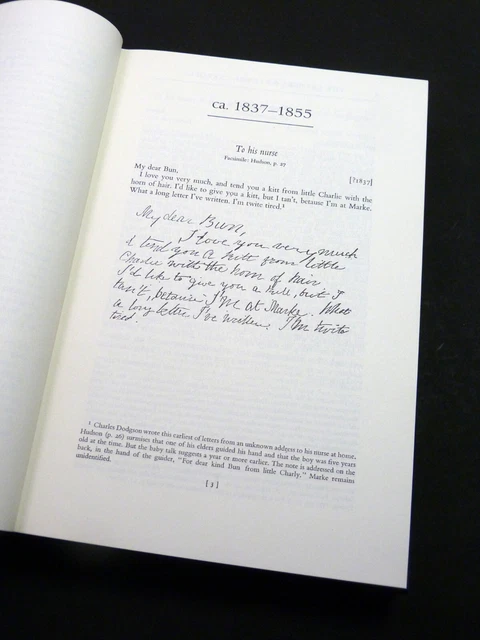 ca. 1837–1855
To his nurse
Facsimile: Hudson, p. 27
[?1837]
My dear Bun,
I love you very much, and tend you a kitt from little Charlie with the
horn of hair. I'd like to give you a kitt, but I tan't, betause I'm at Marke.
What a long letter I've written. I'm twite tired.¹
My dear Bun,
I love you very much
& tend you a kitt from little
Charlie with the horn of hair
I'd like to give you a kitt, but I
tan't, betause I'm at Marke. What
a long letter I've written. I'm twite
tired.
¹ Charles Dodgson wrote this earliest of letters from an unknown address to his nurse at home.
Hudson (p. 26) surmises that one of his elders guided his hand and that the boy was five years
old at the time. But the baby talk suggests a year or more earlier. The note is addressed on the
back, in the hand of the guider, "For dear kind Bun from little Charly." Marke remains
unidentified.
[ 3 ]